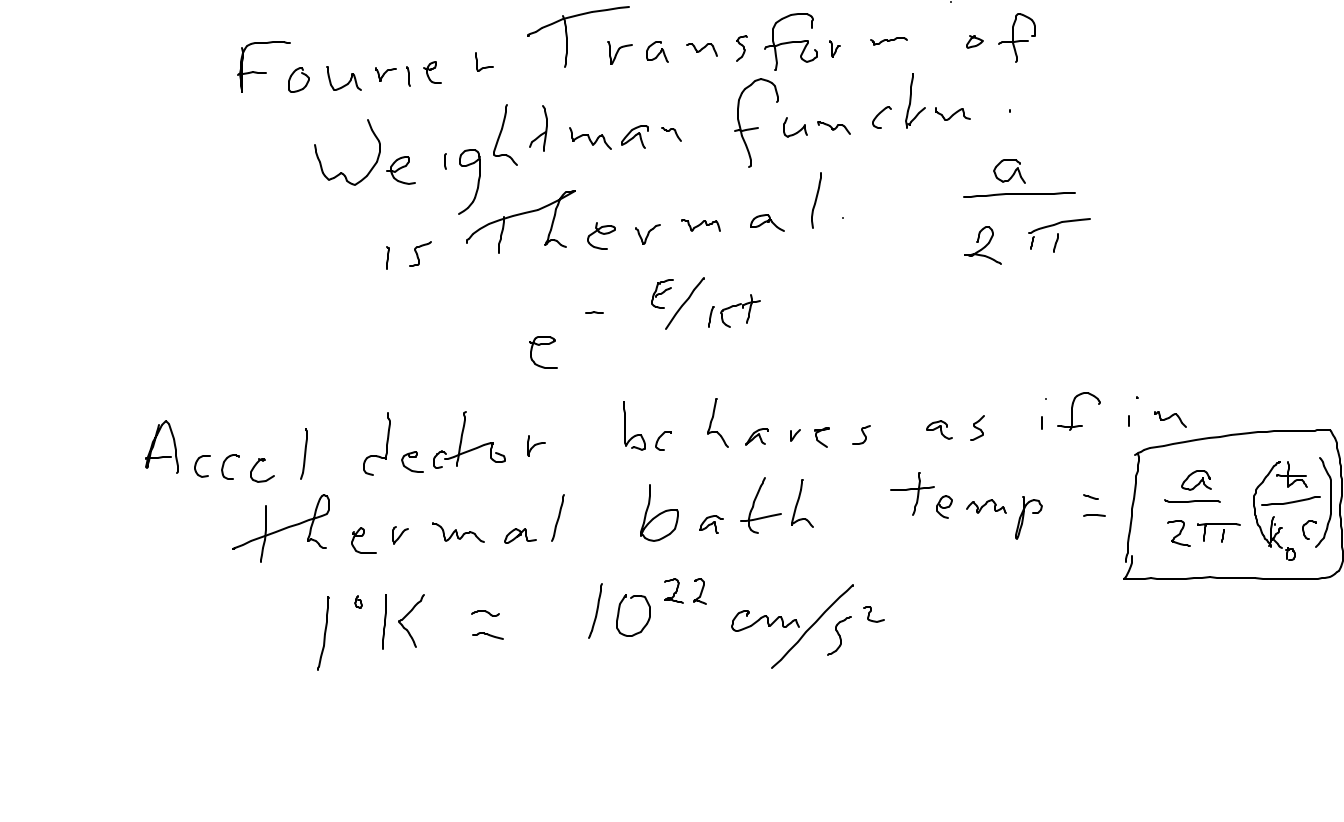 Fourier Transform of
Weightman functn.
is Thermal. a/2π
e^{-E/kt}
Accel dector behaves as if in
thermal bath temp = a/2π (ħ/k_b c)
1°K ≈ 10^{22} cm/s^2